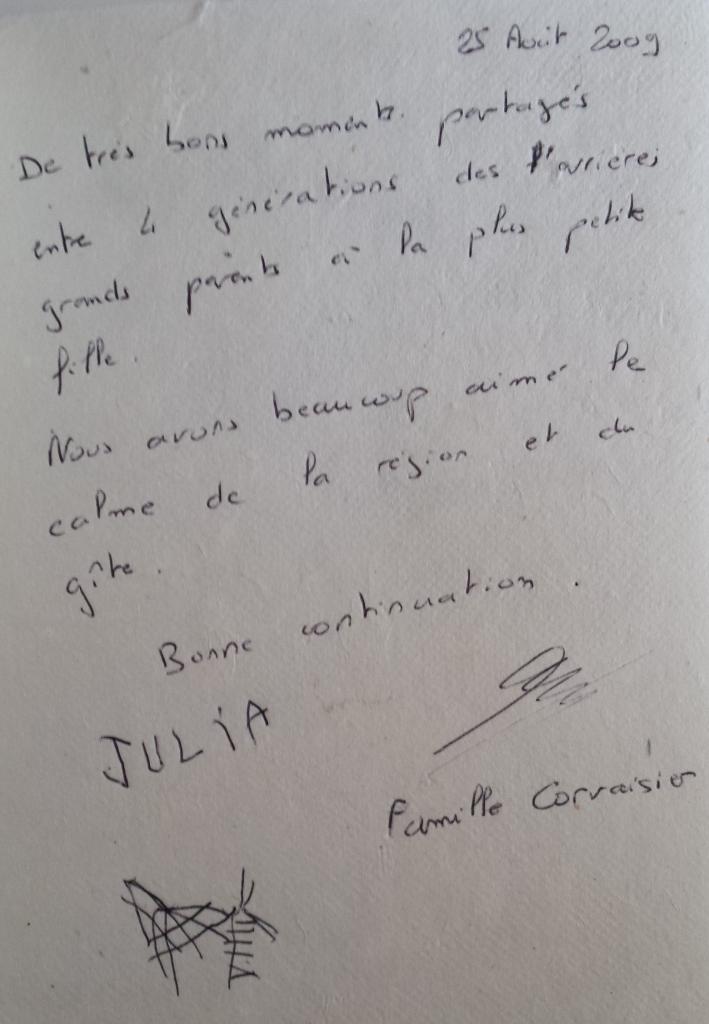 25 Août 2009
De très bons moments partagés
entre 4 générations des arrières
grands parents à la plus petite
fille.
Nous avons beaucoup aimé le
calme de la région et du
gîte.
Bonne continuation.
JULIA
Famille Corvaisier